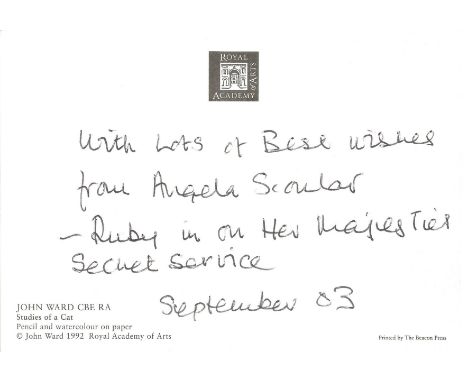 ROYAL
ACADEMY
OF ARTS
With Lots of Best wishes
from Angela Scoular
– Ruby in on Her Majesties
Secret Service
September 03
JOHN WARD CBE RA
Studies of a Cat
Pencil and watercolour on paper
© John Ward 1992 Royal Academy of Arts
Printed by The Beacon Press